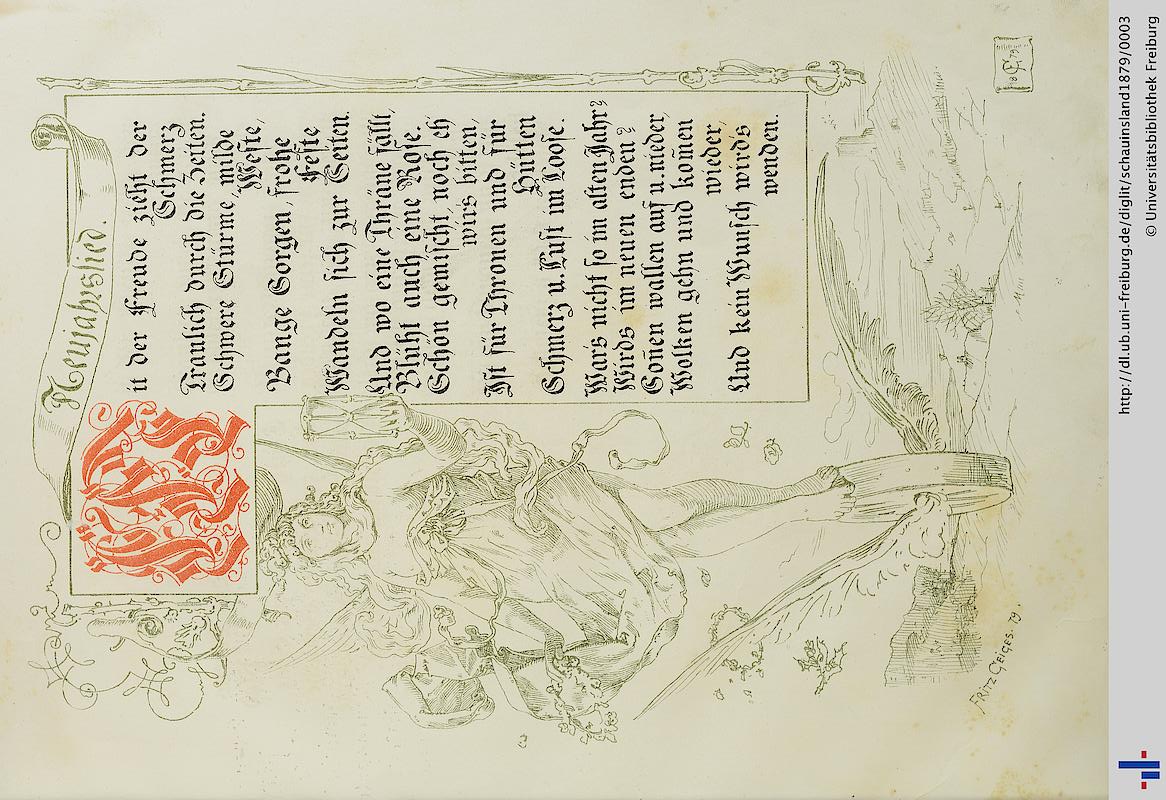 Neujahrslied.
Mit der Freude zieht der
Schmerz
Traulich durch die Zeiten.
Schwere Stürme, milde
Weste,
Bange Sorgen, frohe
Feste
Wandeln sich zur Seiten.
Und wo eine Thräne fällt,
Blüht auch eine Rose.
Schön gemischt, noch eh
wirs bitten,
Ist für Thronen und für
Hütten
Schmerz u. Lust im Loose.
Wars nicht so im alten Jahr?
Wirds im neuen enden?
Soñen wallen auf u. nieder,
Wolken gehn und kom̃en
wieder,
Und kein Wunsch wirds
wenden.
FRITZ GEIGES. 79.
http://dl.ub.uni-freiburg.de/diglit/schauinsland1879/0003
© Universitätsbibliothek Freiburg